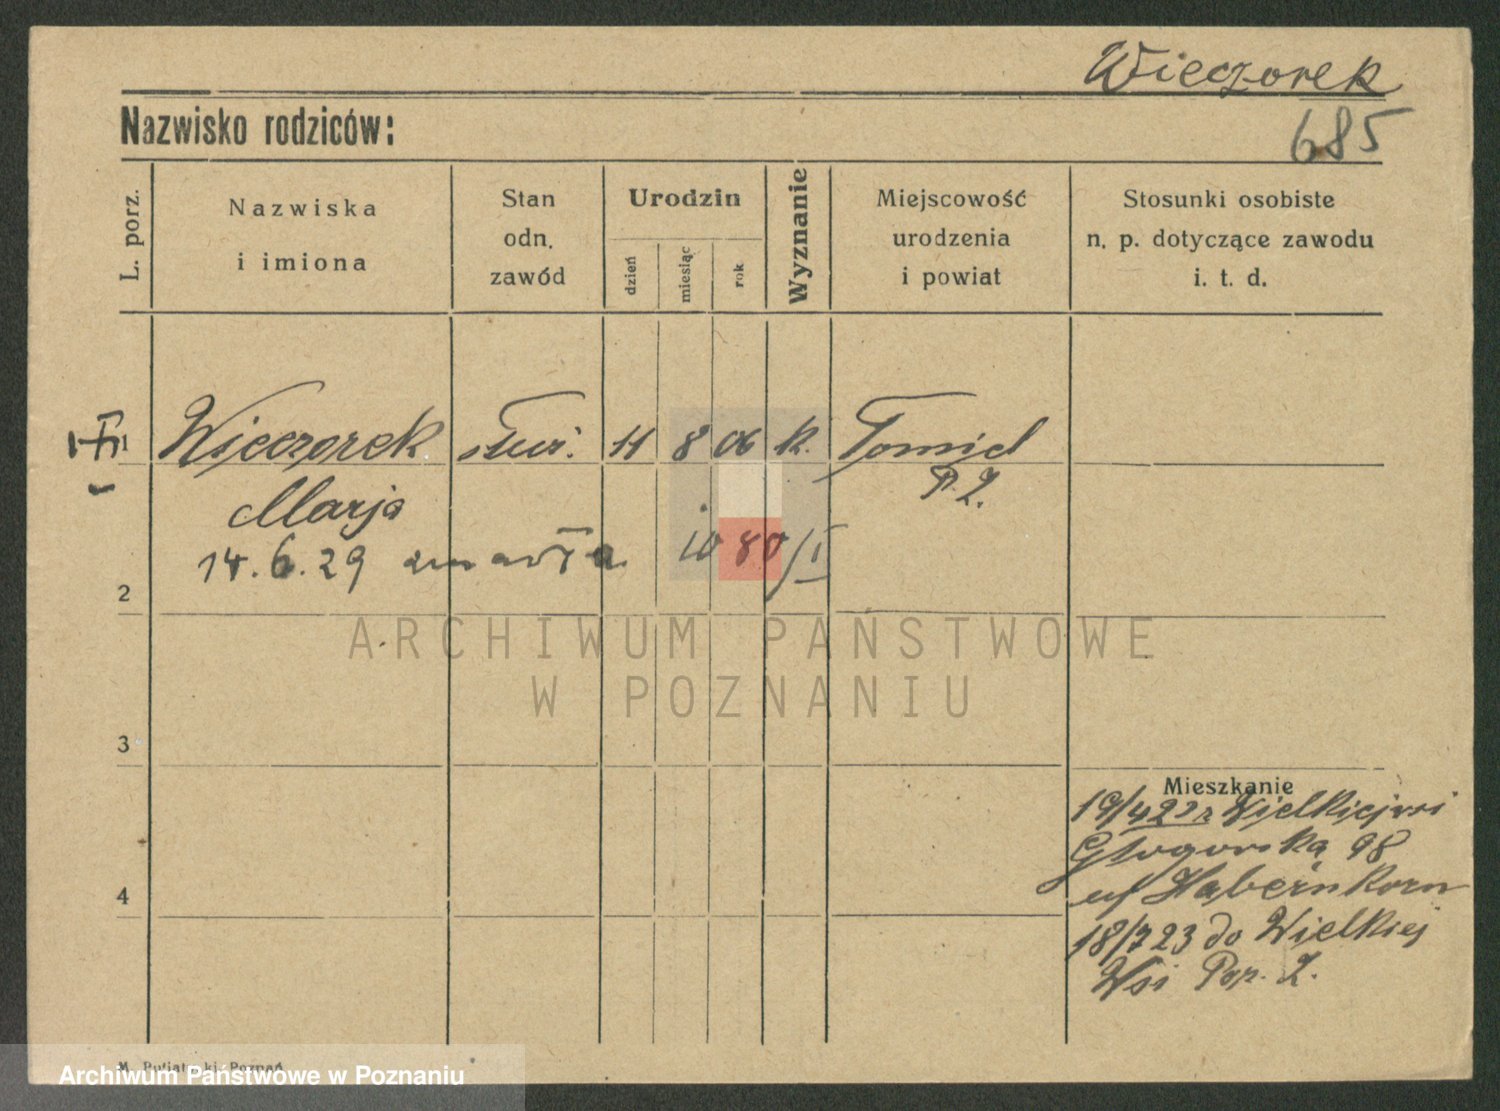 Wieczorek
Nazwisko rodziców:
685
L. porz.
Nazwiska
i imiona
Stan
odn.
zawód
Urodzin
dzień
miesiąc
rok
Wyznanie
Miejscowość
urodzenia
i powiat
Stosunki osobiste
n. p. dotyczące zawodu
i. t. d.
1 Wieczorek służ. 11 8 06 k.
Marja P. Z.
14.6.29 zmarła 10 80/I
2
ARCHIWUM PAŃSTWOWE
W POZNANIU
3
Mieszkanie
19/4 22 z Wielkiejwsi
Głogowska 98
18/7 23 do Wielkiej
Wsi Pop. Z.
4
Archiwum Państwowe w Poznaniu